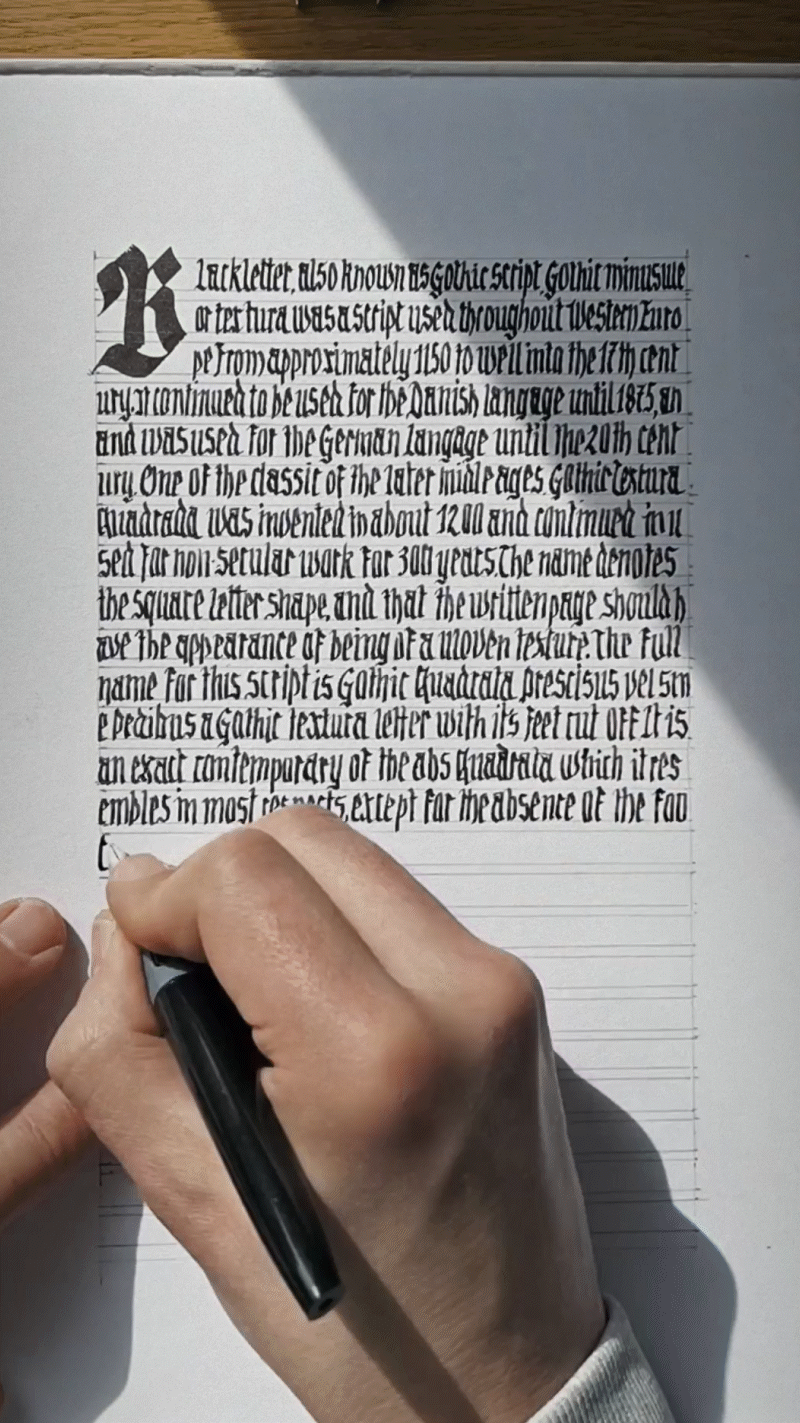 Blackletter, also known as Gothic script, Gothic minusule
or textura was a script used throughout Western Euro
pe from approximately 1150 to well into the 17th cent
ury. It continued to be used for the Danish langage until 1875, an
and was used for the German langage until the 20th cent
ury. One of the classic of the later midle ages Gothic textura
Quadrada was invented in about 1200 and continued in u
sed for non-secular work for 300 years. The name denotes
the square letter shape, and that the written page should h
ave the appearance of being of a woven texture. The full
name for this script is Gothic Quadrata prescisus vel sin
e pedibus a Gothic textura letter with its feet cut off It is
an exact contemporary of the abs Quadrata which it res
embles in most respects, except for the absence of the foo
t